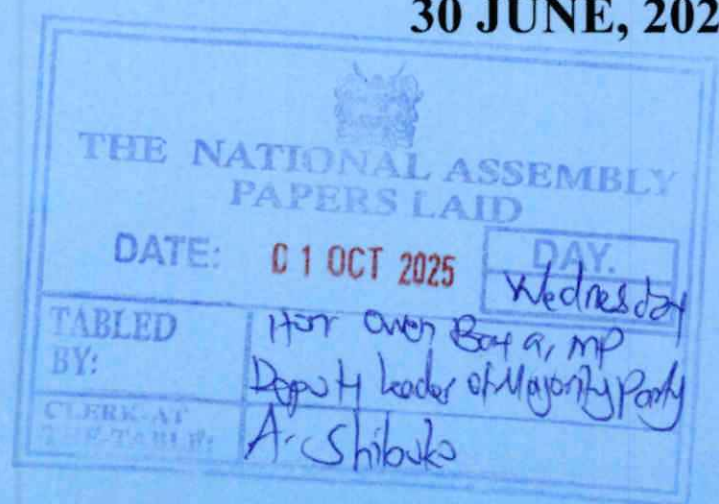 30 JUNE, 202
THE NATIONAL ASSEMBLY
PAPERS LAID
DATE: 01 OCT 2025
DAY.
Wednesday
TABLED BY:
Hon Owen Baya, MP
Deputy Leader of Majority Party
CLERK-AT THE-TABLE:
A. Shibuko